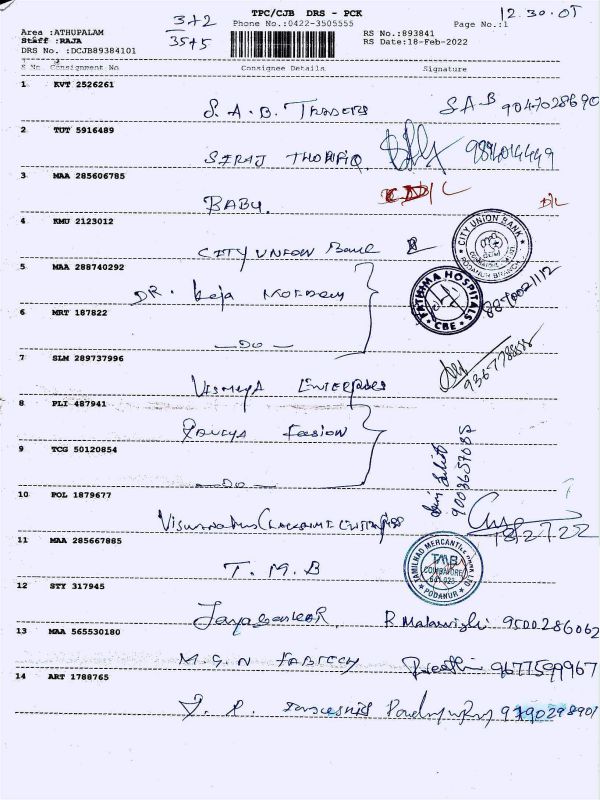 TPC/CJB DRS - PCK
12.30.05
Phone No.:0422-3505555
Page No.:1
3+2
35+5
Area :ATHUPALAM
Staff :RAJA
DRS No. :DCJB89384101
RS No.:893841
RS Date:18-Feb-2022
S No. Consignment No Consignee Details Signature
1 KVT 2526261
S.A.B. TRADERS S.A.B 9047028690
2 TUT 5916489
SIRAJ THOUFIQ 9894014449
3 MAA 285606785
BABU. D/L
D/L
4 KMU 2123012
CITY UNION Bank
CITY UNION BANK
PODANUR BRANCH
5 MAA 288740292
DR. Raja
FATHIMA HOSPITALS
CBE
6 MRT 187822
—DO—
7 SLM 289737996
9367788555
8 PLI 487941
9 TCG 50120854
—DO—
9003657085
10 POL 1879677
18.2.22
11 MAA 285667885
T.M.B
TAMILNAD MERCANTILE BANK LTD
TMB
COIMBATORE
641 023
PODANUR
12 STY 317945
Jayasankar R. Malarvizhi 9500286062
13 MAA 565530180
M.G.N FABTECH Preethi 9677599967
14 ART 1788765
9790298901